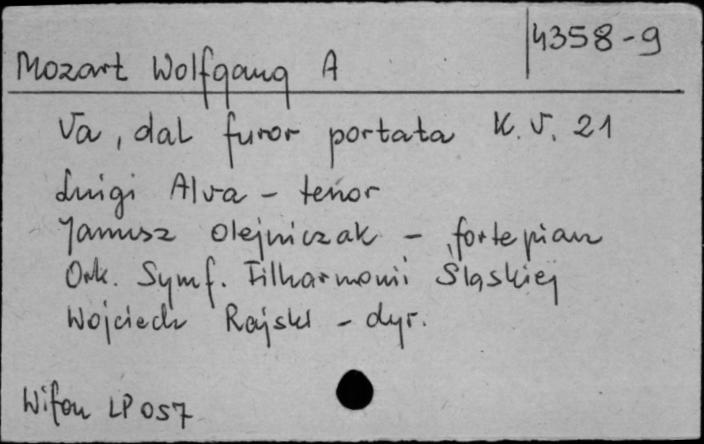 4358-9
Mozart Wolfgang A
Va, dal furor portata K.V. 21
Luigi Alva - tenor
Janusz Olejniczak - fortepian
Ork. Symf. Filharmonii Śląskiej
Wojciech Rajski - dyr.
Wifon LP 057